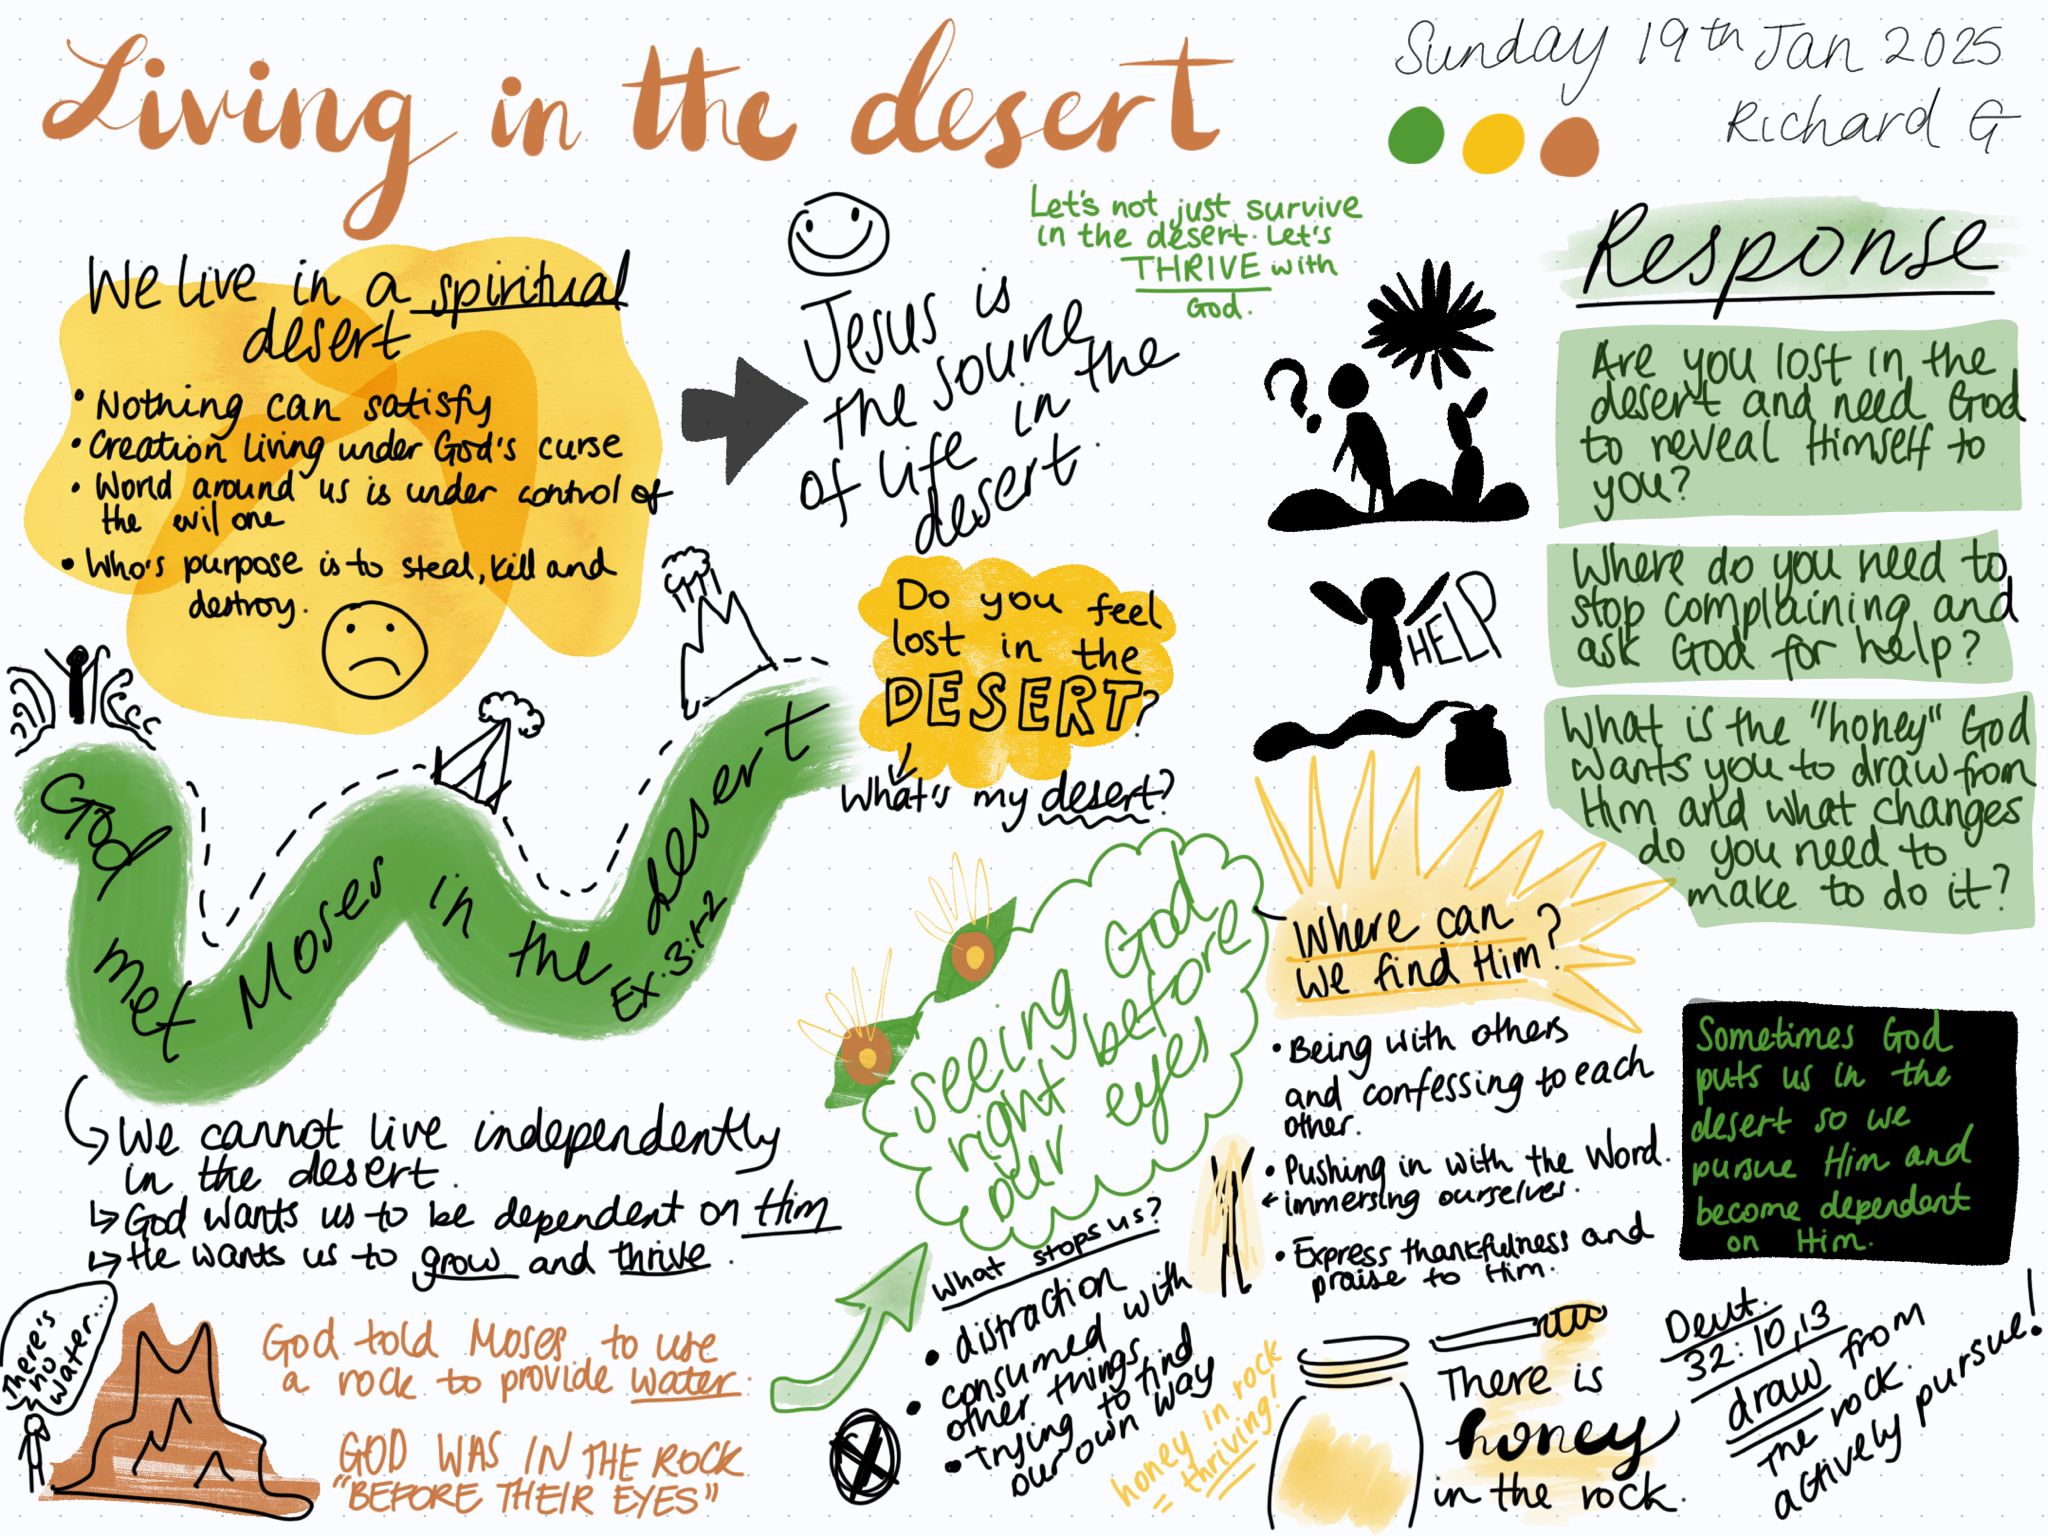 Living in the desert
Sunday 19th Jan 2025
Richard G
We live in a spiritual
desert
• Nothing can satisfy
• Creation living under God's curse
• World around us is under control of
the evil one
• Who's purpose is to steal, kill and
destroy.
Jesus is
the source
of life in the
desert.
Let's not just survive
in the desert. Let's
THRIVE with
God.
Do you feel
lost in the
DESERT?
What's my desert?
God met Moses in the desert
Ex. 3:1-2
We cannot live independently
in the desert.
↳ God wants us to be dependent on Him
↳ He wants us to grow and thrive.
There's
no
water...
God told Moses to use
a rock to provide water.
GOD WAS IN THE ROCK
"BEFORE THEIR EYES"
seeing God
right before
our eyes
What stops us?
• distraction
• consumed with
other things
• trying to find
our own way
Where can
we find Him?
• Being with others
and confessing to each
other.
• Pushing in with the Word.
← immersing ourselves.
• Express thankfulness and
praise to Him.
honey in rock
= thriving!
There is
honey
in the rock.
Deut.
32:10,13
draw from
the rock.
actively pursue!
Response
?
Are you lost in the
desert and need God
to reveal Himself to
you?
HELP
Where do you need to
stop complaining and
ask God for help?
What is the "honey" God
wants you to draw from
Him and what changes
do you need to
make to do it?
Sometimes God
puts us in the
desert so we
pursue Him and
become dependent
on Him.